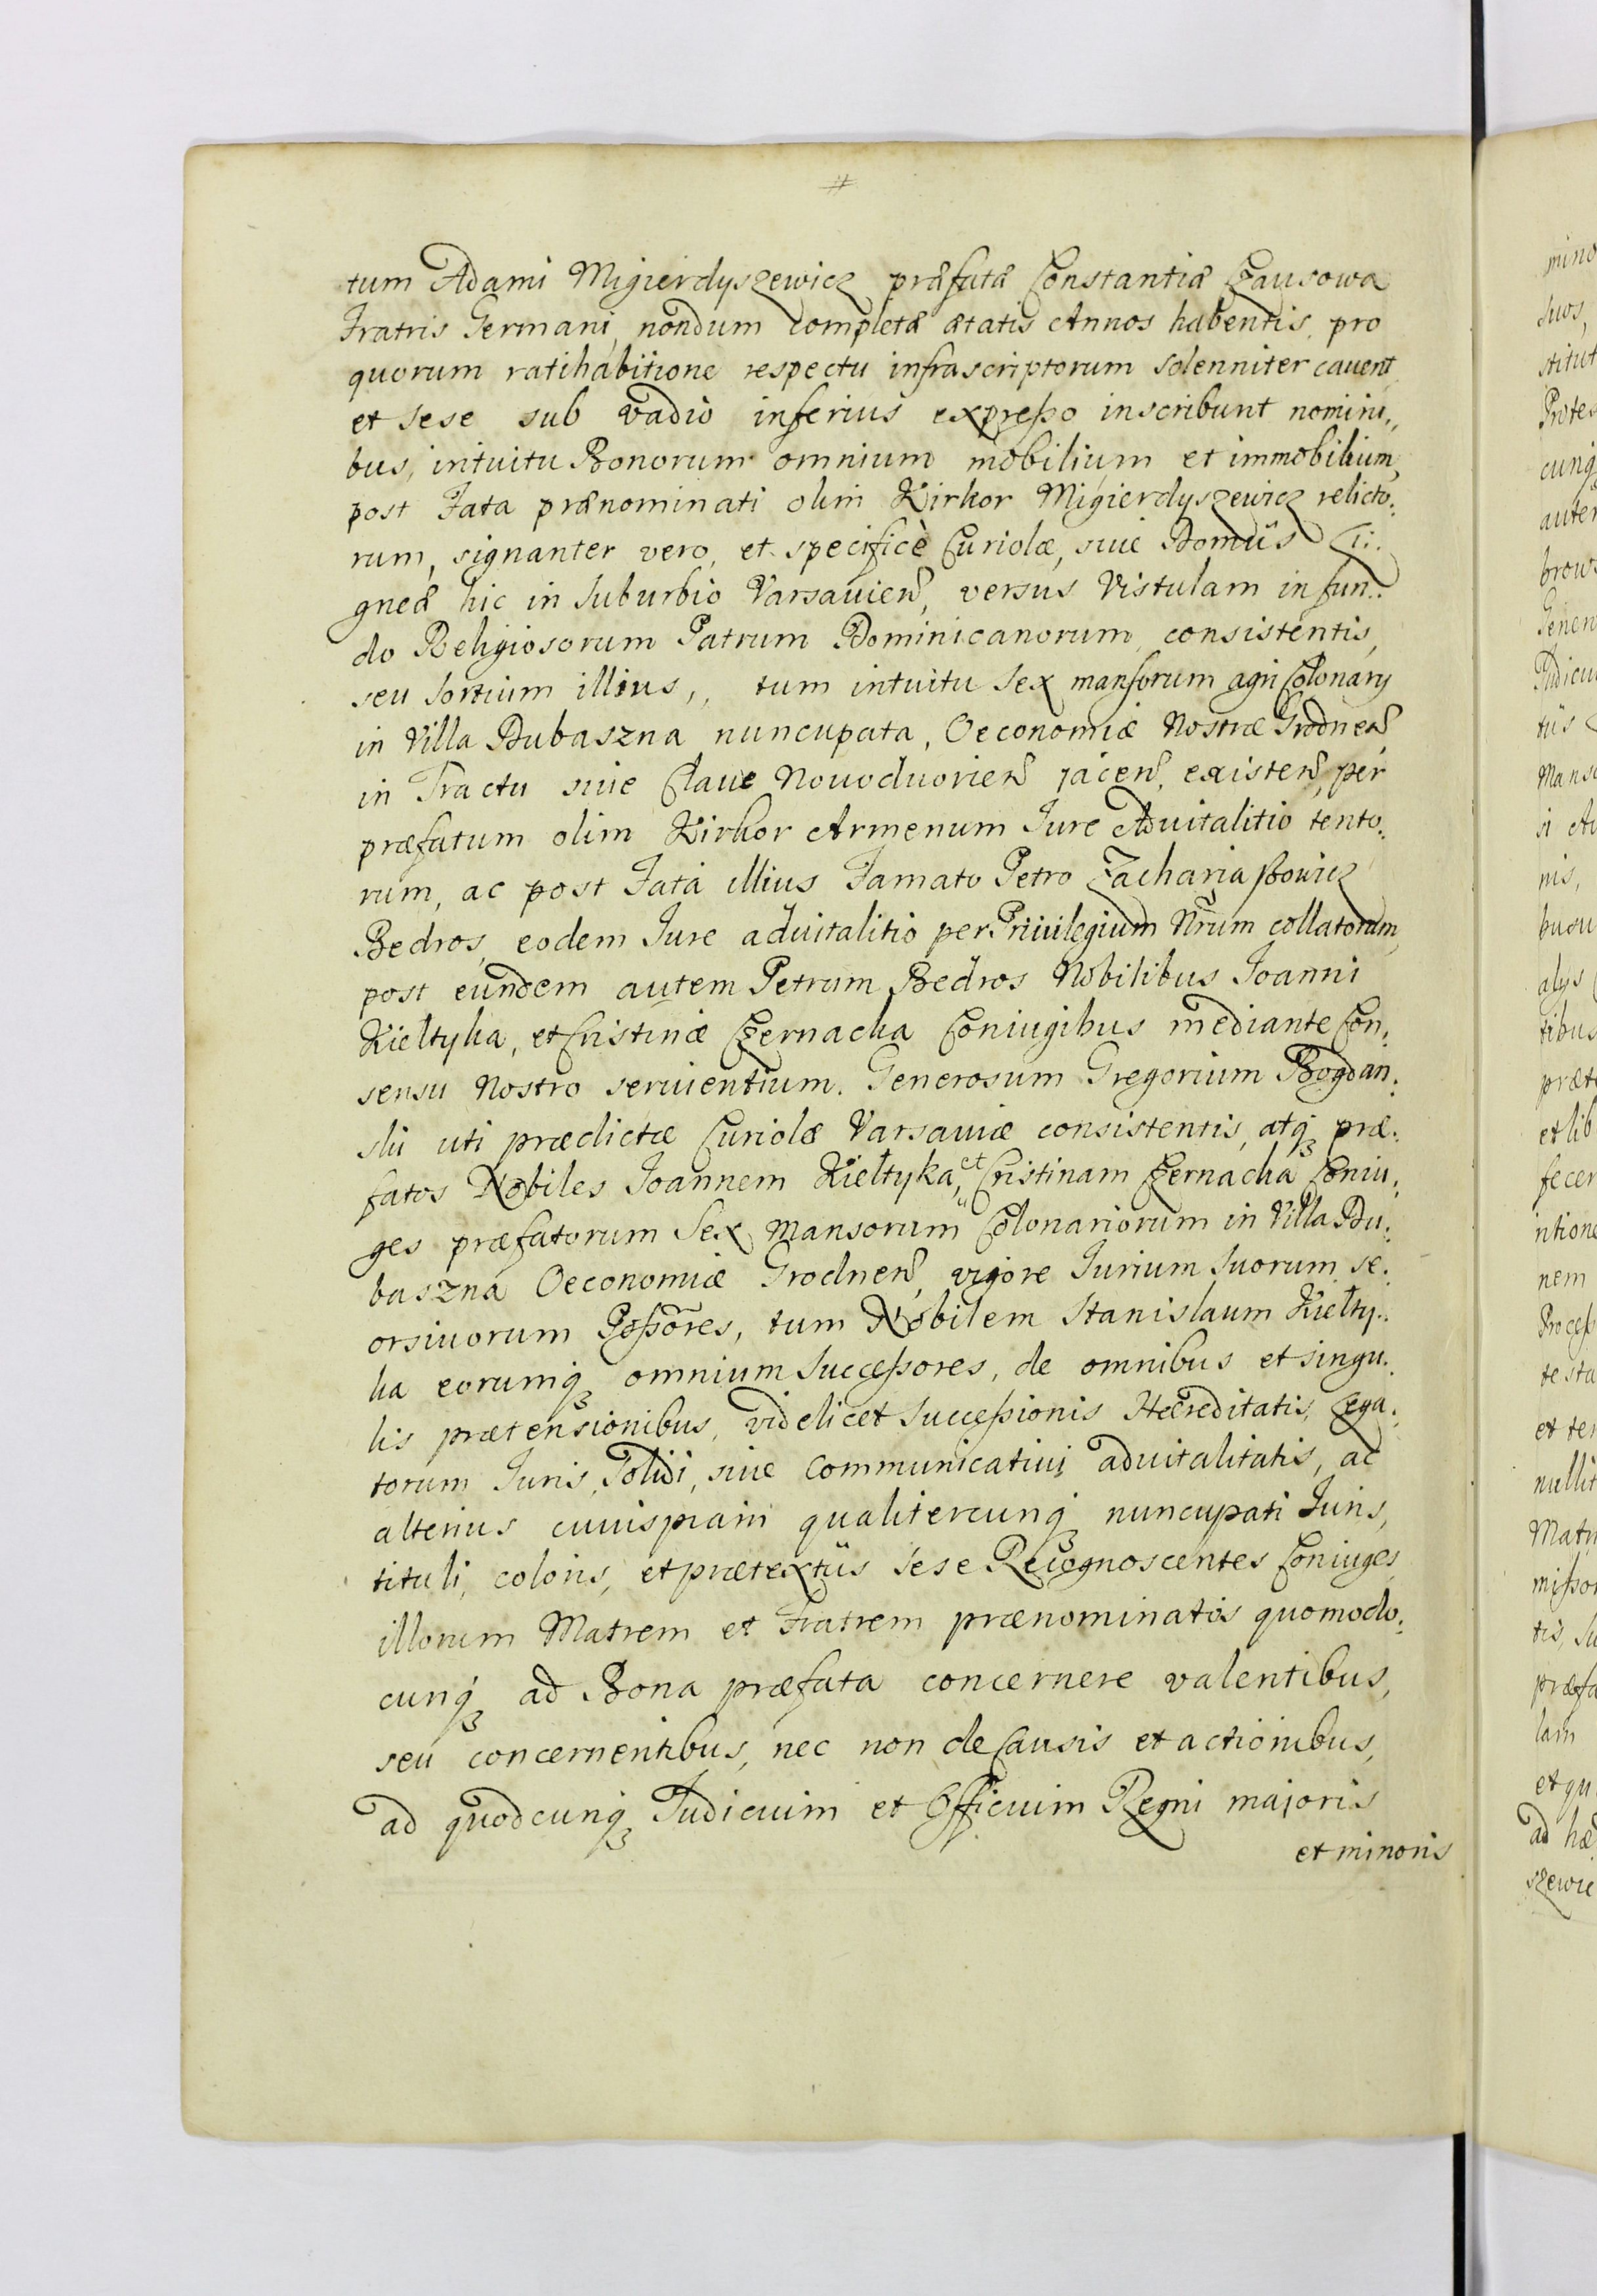 #
tum Adami Migierdyszewicz præfatæ Constantiæ Czausowa
Fratris Germani, nondum completæ ætatis Annos habentis, pro
quorum ratihabitione respectu infrascriptorum solenniter cavent
et sese sub vadio inferius expresso inscribunt nomini,,
bus, intuitu Bonorum omnium mobilium et immobilium,
post Fata prænominati olim Kirkor Migierdyszewicz relicto:
rum, signanter vero, et specificè Curiolæ, sive Domûs Li:
gneæ hic in Suburbio Varsavien, versus Vistulam in fun:
do Religiosorum Patrum Dominicanorum, consistentis,
seu sortium illius, tum intuitu Sex mansorum agri Colonarij
in Villa Dubaszna nuncupata, Oeconomiæ Nostræ Grodnen
in Tractu sive Clave Novodvorien jacen, existen, per
præfatum olim Kirkor Armenum Jure Advitalitio tento:
rum, ac post Fata illius Famato Petro Zachariaszowicz
Bedros, eodem Jure advitalitio per Privilegium Nrum collatorum,
post eundem autem Petrum Bedros Nobilibus Joanni
Kieltyka, et Cristinæ Czernacka Coniugibus mediante Con:
sensu Nostro servientium. Generosum Gregorium Bogdan:
ski uti prædictæ Curiolæ Varsaviæ consistentis, atq præ:
fatos Nobiles Joannem Kiełtyka, et Cristinam Czernacka Coniu:
ges præfatorum Sex Mansorum Colonariorum in Villa Du:
baszna Oeconomiæ Grodnen, vigore Jurium suorum se:
orsivorum Possores, tum Nobilem Stanislaum Kiełty:
ka eorumq omnium Successores, de omnibus et singu:
lis prætensionibus, videlicet Successionis Hæreditatis, Lega:
torum Juris Solidi, sive Communicativi advitalitatis, ac
alterius cuiuspiam qualitercunq nuncupati Juris,
tituli, coloris, et prætextûs sese Recognoscentes Coniuges,
illorum Matrem et Fratrem prænominatos quomodo:
cunq ad Bona præfata concernere valentibus,
seu concernentibus, nec non de Causis et actionibus,
ad quodcunq Judicium et Officium Regni majoris
et minoris